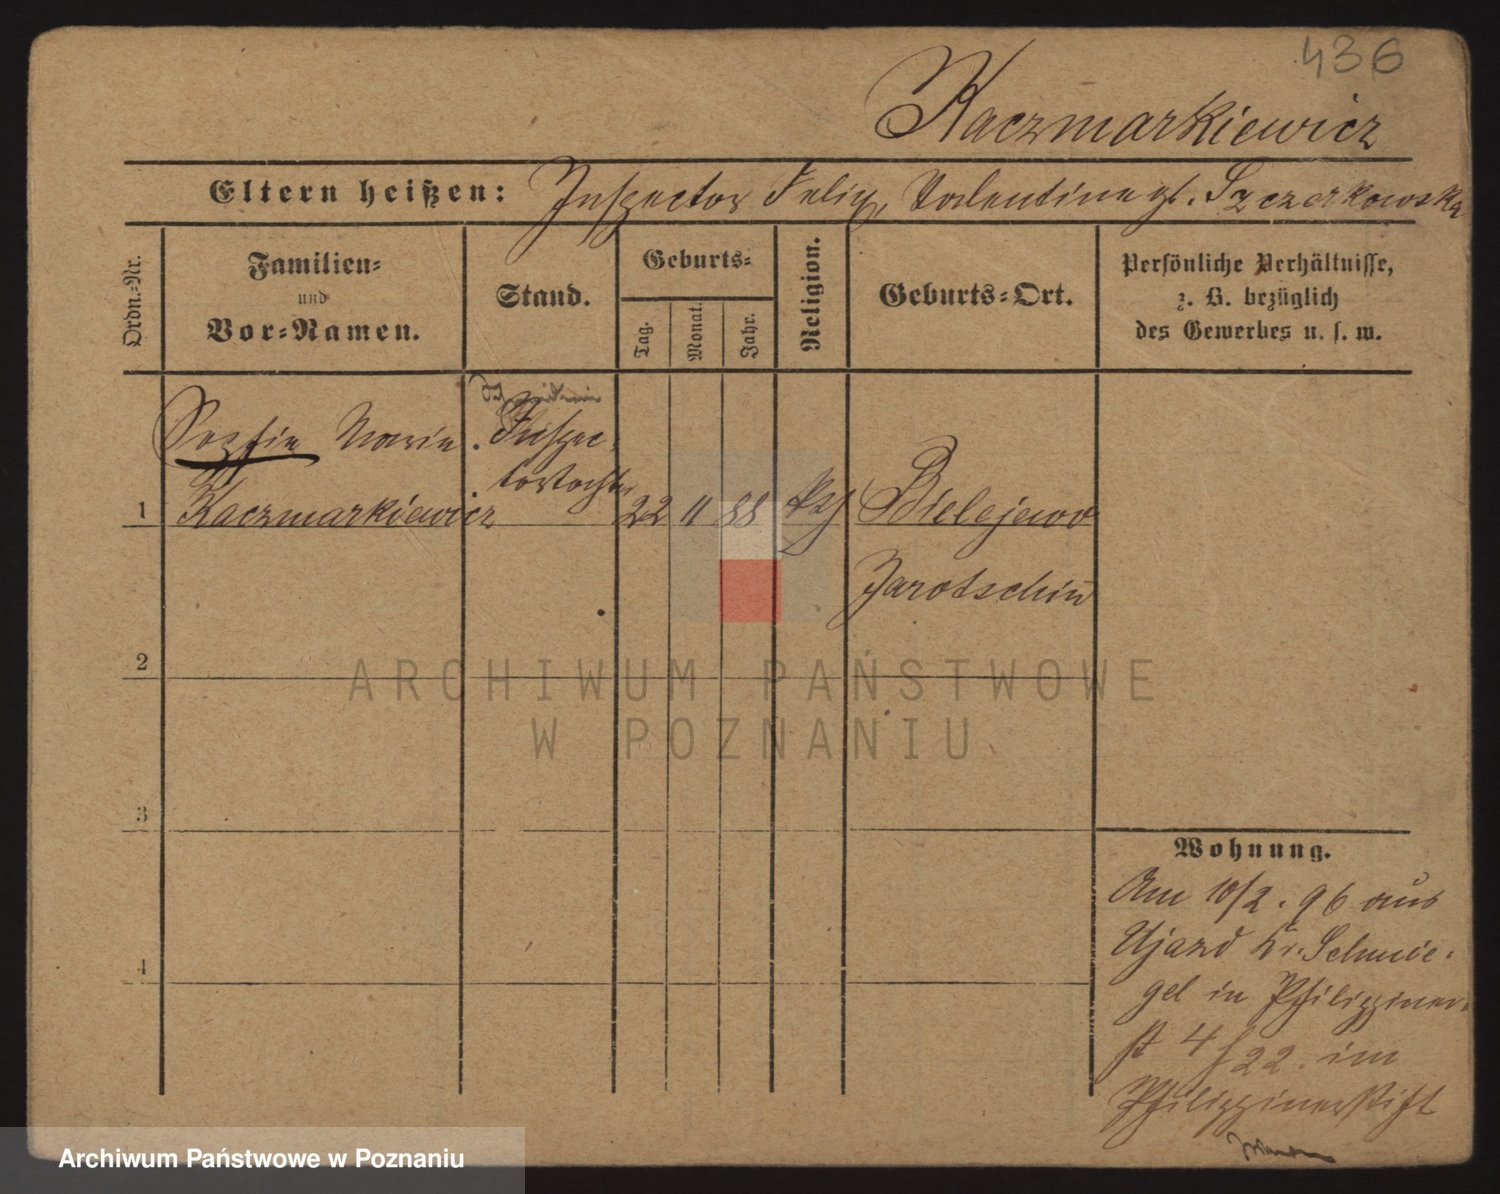 436
Kaczmarkiewicz
Eltern heißen: Inspector Felix, Valentine gb. Szczerkowska
Ordn.-Nr.
Familien-
und
Vor-Namen.
Stand.
Geburts-
Tag.
Monat.
Jahr.
Religion.
Geburts-Ort.
Persönliche Verhältnisse,
z. B. bezüglich
des Gewerbes u. s. w.
Sophie Marie
Inspec-
tortochter
1 Kaczmarkiewicz 22 11 88 Bielejewo
Jarotschin
2
3
4
Wohnung.
Am 10/2. 96 aus
Ujazd Kr. Schmie-
gel in Philippiner-
st 4 f 22. im
Philippinenstift
ARCHIWUM PAŃSTWOWE
W POZNANIU
Archiwum Państwowe w Poznaniu